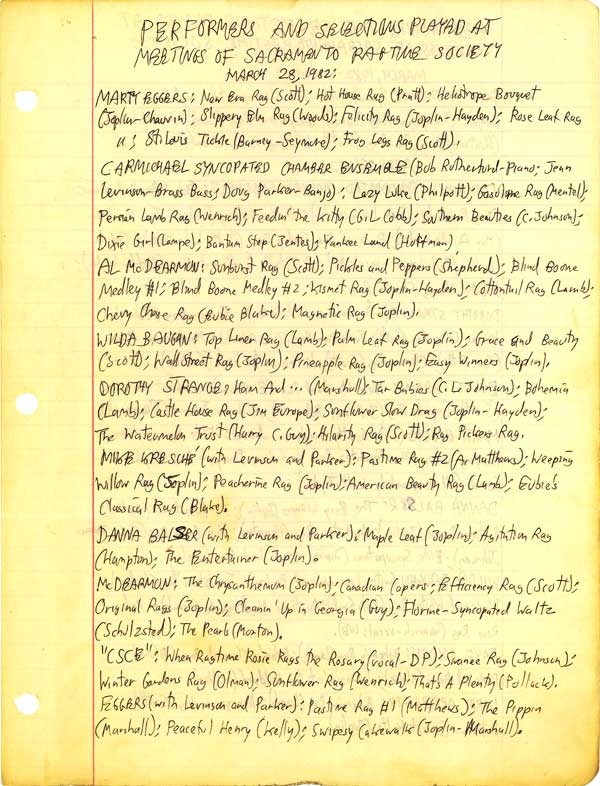 PERFORMERS AND SELECTIONS PLAYED AT
MEETINGS OF SACRAMENTO RAGTIME SOCIETY
MARCH 28, 1982:
MARTY EGGERS: New Era Rag (Scott); Hot House Rag (Pratt); Heliotrope Bouquet
(Joplin-Chauvin); Slippery Elm Rag (Woods); Felicity Rag (Joplin-Hayden); Rose Leaf Rag
"; St. Louis Tickle (Barney-Seymore); Frog Legs Rag (Scott).
CARMICHAEL SYNCOPATED CHAMBER ENSEMBLE (Bob Rutherford-Piano; Jean
Levinson-Brass Bass; Doug Parker-Banjo): Lazy Luke (Philpott); Gasoline Rag (Mentel);
Persian Lamb Rag (Wenrich); Feedin' the Kitty (G.L. Cobb); Southern Beauties (C. Johnson);
Dixie Girl (Lampe); Bantam Step (Jentes); Yankee Land (Hoffman)
AL McDEARMON: Sunburst Rag (Scott); Pickles and Peppers (Shepherd); Blind Boone
Medley #1; Blind Boone Medley #2; Kismet Rag (Joplin-Hayden); Cottontail Rag (Lamb);
Chevy Chase Rag (Eubie Blake); Magnetic Rag (Joplin).
WILDA BAUGHN: Top Liner Rag (Lamb); Palm Leaf Rag (Joplin); Grace and Beauty
(Scott); Wall Street Rag (Joplin); Pineapple Rag (Joplin); Easy Winners (Joplin).
DOROTHY STRANGE: Ham And ... (Marshall); Tar Babies (C.L. Johnson); Bohemia
(Lamb); Castle House Rag (Jim Europe); Sunflower Slow Drag (Joplin-Hayden);
The Watermelon Trust (Harry C. Guy); Hilarity Rag (Scott); Rag Pickers Rag.
MIKE (with Levinson and Parker): Pastime Rag #2 (Ar Matthews); Weeping
Willow Rag (Joplin); Peacherine Rag (Joplin); American Beauty Rag (Lamb); Eubie's
Classical Rag (Blake).
DANNA BALSER (with Levinson and Parker): Maple Leaf (Joplin); Agitation Rag
(Hampton); The Entertainer (Joplin).
McDEARMON: The Chrysanthemum (Joplin); Canadian Capers; Efficiency Rag (Scott);
Original Rags (Joplin); Cleanin' Up in Georgia (Guy); Florine-Syncopated Waltz
(Schulzsted); The Pearls (Morton).
"CSCE": When Ragtime Rosie Rags the Rosary (vocal-DP); Swanee Rag (Johnson);
Winter Gardens Rag (Olman); Sunflower Rag (Wenrich); That's A Plenty (Pollack).
EGGERS (with Levinson and Parker): Pastime Rag #1 (Matthews); The Pippin
(Marshall); Peaceful Henry (Kelly); Swipesy Cakewalk (Joplin-Marshall).